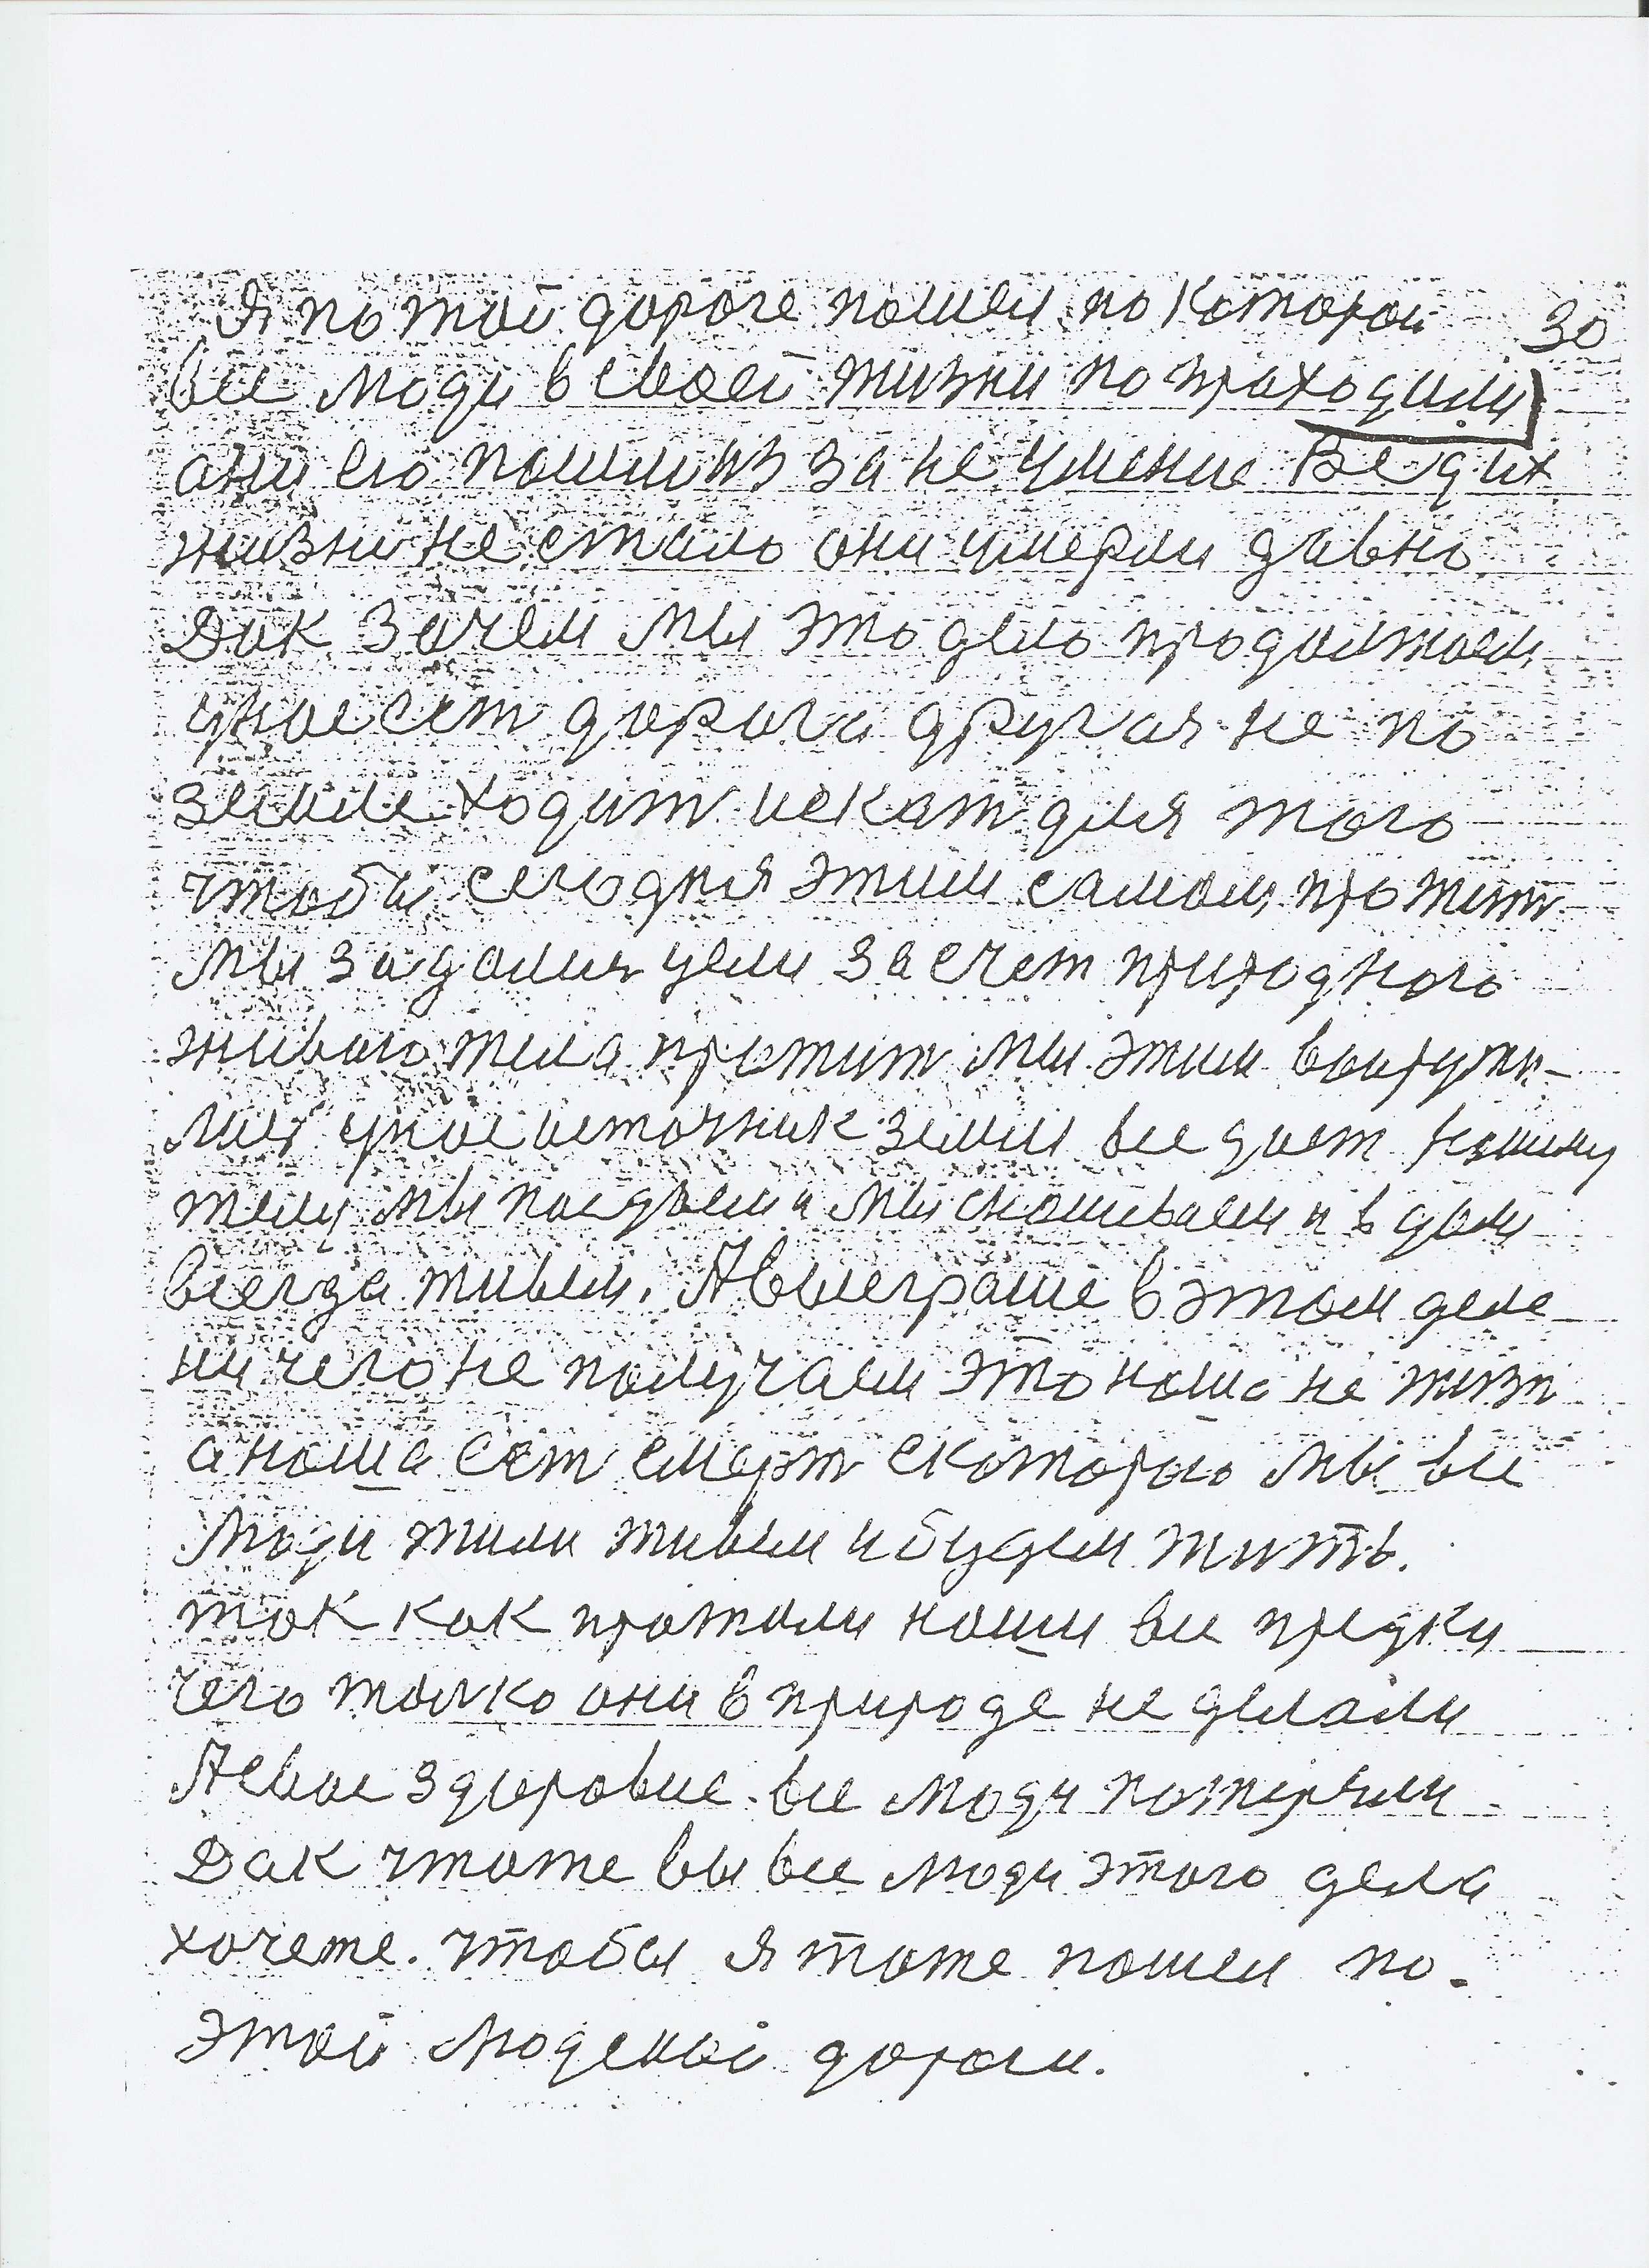 Я по той дороге пошел по которой 30
все люди в своей жизни по проходили
они его пошли из за не умение Ведих
жизни не стало они умерли давно
Дак зачем мы это дело продолжаем
у нас ест дорога другая не по
земле ходит искат для того
чтобы сегодня этим самом, прожит
мы зададимя цели за счет природного
живого тела прожит мы этим выручи-
лис у нас источник земли все дает нашему
телу мы посдаем и мы скашиваем и в дом
всегда живем. А выеграше в этом деле
ни чего не получаем это наша не жизн
а наша ест смерт скоторою мы все
люди жили живем и будем жить.
так как прожили наши все предки
чего толко они в природе не делали
А свое здоровие все люди потеряли
Дак что же вы все люди этого дела
хочете. чтобы я тоже пошел по
этой людской дороги.